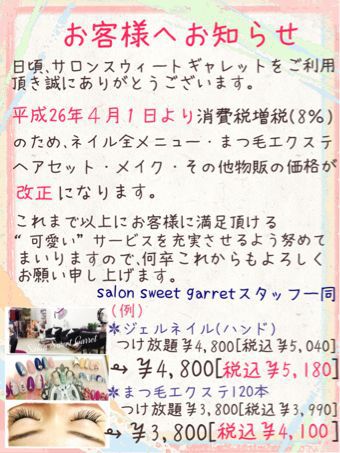 お客様へお知らせ
日頃、サロンスウィートギャレットをご利用
頂き誠にありがとうございます。
平成26年4月1日より消費税増税(8%)
のため、ネイル全メニュー・まつ毛エクステ
ヘアセット・メイク・その他物販の価格が
改正になります。
これまで以上にお客様に満足頂ける
“可愛い”サービスを充実させるよう努めて
まいりますので、何卒これからもよろしく
お願い申し上げます。
salon sweet garretスタッフ一同
(例)
＊ジェルネイル(ハンド)
つけ放題¥4,800[税込¥5,040]
→¥4,800[税込¥5,180]
＊まつ毛エクステ120本
つけ放題¥3,800[税込¥3,990]
→¥3,800[税込¥4,100]